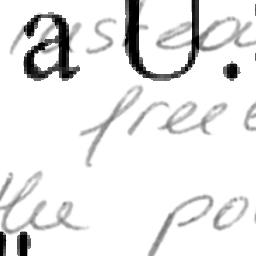 a U.
instead
free
the po